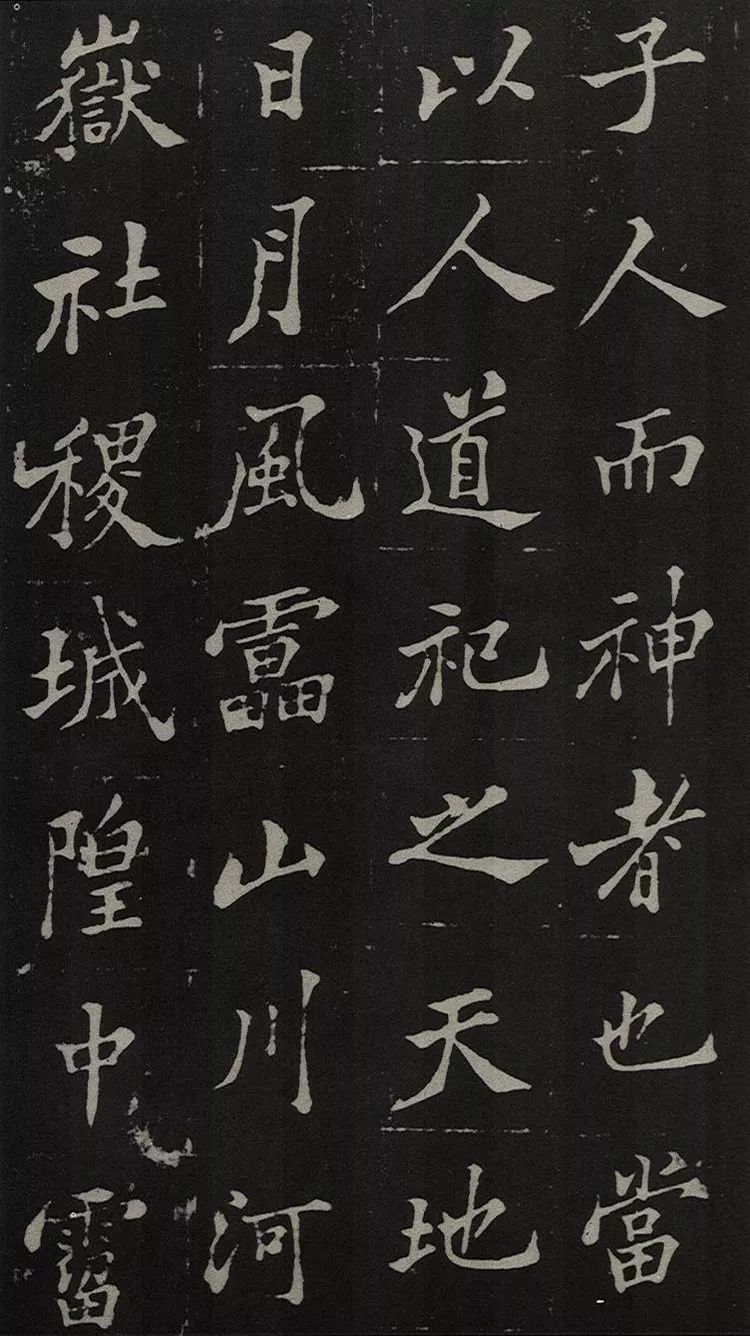 子人而神者也當
以人道祀之天地
日月風靁山川河
嶽社稷城隍中霤